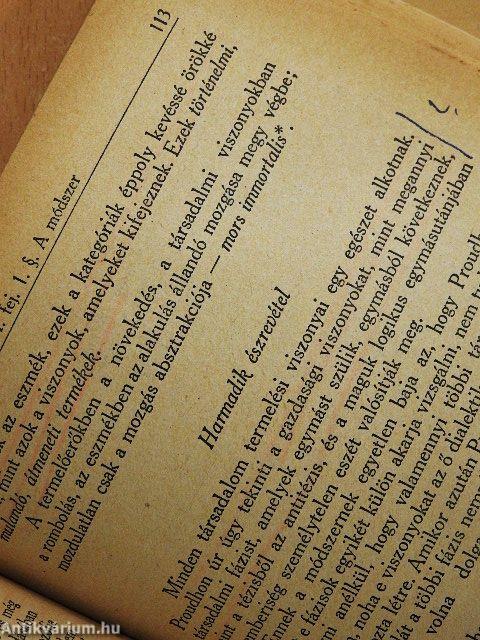 2. fej. 1. §. A módszer 113
az eszmék, ezek a kategóriák éppoly kevéssé örökké
mint azok a viszonyok, amelyeket kifejeznek. Ezek történelmi,
mulandó, átmeneti termékek.
A termelőerőkben a növekedés, a társadalmi viszonyokban
a rombolás, az eszmékben az alakulás állandó mozgása megy végbe;
mozdulatlan csak a mozgás absztrakciója — mors immortalis*.
Harmadik észrevétel
Minden társadalom termelési viszonyai egy egészet alkotnak.
Proudhon úr úgy tekinti a gazdasági viszonyokat, mint megannyi
társadalmi fázist, amelyek egymást szülik, egymásból következnek,
mint a tézisből az antitézis, és a maguk logikus egymásutánjában
emberiség személytelen eszét valósítják meg.
Ennek a módszernek egyetlen baja az, hogy Proudhon
e fázisok egyikét külön akarja vizsgálni, nem
anélkül, hogy valamennyi többi tár
noha e viszonyokat az ő dialekti
létre. Amikor azután P
a többi fázis nem
volna dolg
Antikvárium.hu